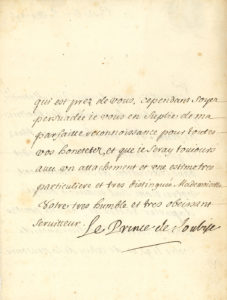 qui est prez de vous, cependant soyez
persuadée je vous en suplie de ma
parfaitte reconnoissance pour toutes
vos honetetez, et que je seray toujours
avec un attachement et une estime tres
particuliere et tres distinguée Mademoiselle
Votre tres humble et tres obeissant
serviteur. Le Prince de Soubise